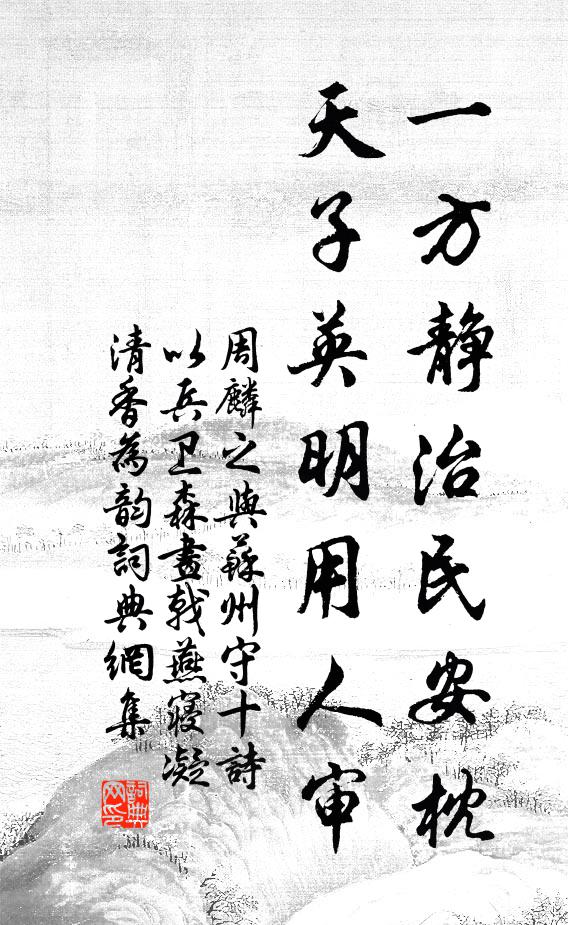 一方靜治民安枕
天子英明用人审
周麟之與蘇州守十詩
以兵卫森畫戟燕寢凝
清香為韵詞典網集
詞典网印